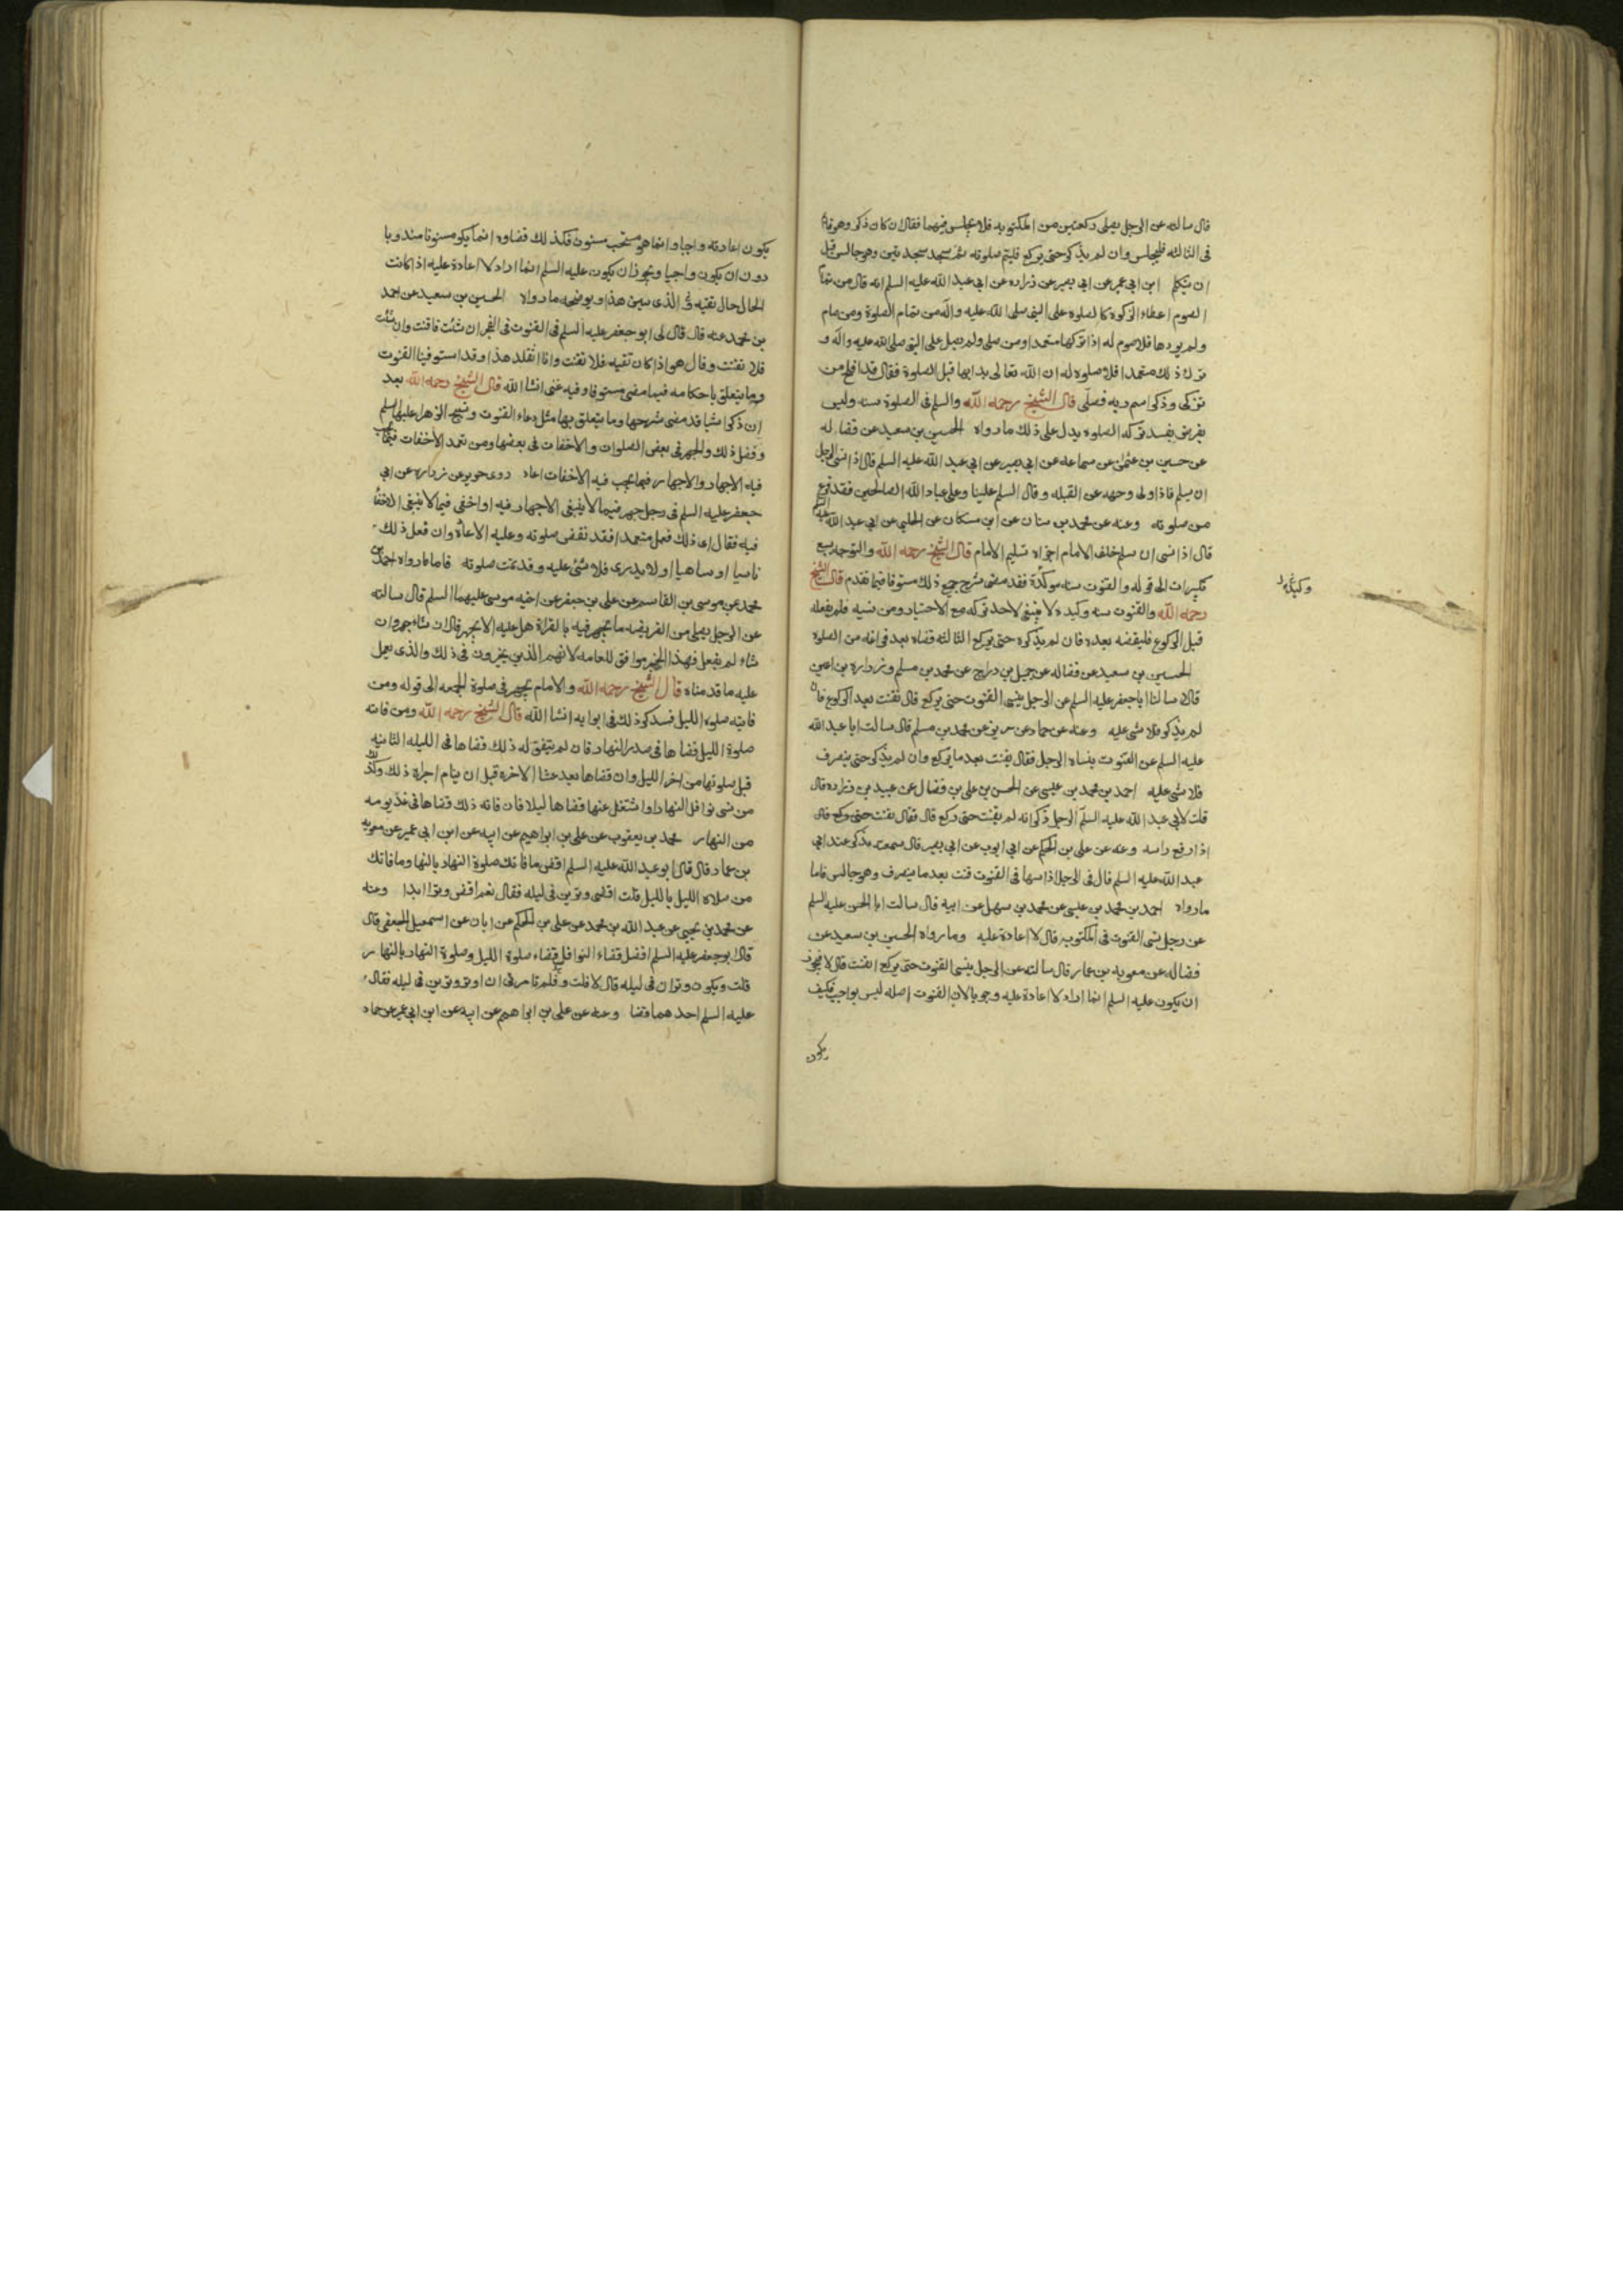 قال سالته عن الرجل يصلى ركعتين من المكتوبه فلا يجلس فيهما فقال ان كان ذكر وهو قائم
فى الثالثه فليجلس وان لم يذكر حتى يركع فليتم صلوته ثم يسجد سجدتين وهو جالس قبل
ان يتكلم ابن ابي عمير عن ابي بصير عن زراره عن ابي عبد الله عليه السلم انه قال من تمام
الصوم اعطاء الزكوة كالصلوه على النبى صلى الله عليه واله من تمام الصلوة ومن صام
ولم يودها فلا صوم له اذا تركها متعمدا ومن صلى ولم يصل على النبى صلى الله عليه واله و
ترك ذلك متعمدا فلا صلوه له ان الله تعالى بدا بها قبل الصلوة فقال قد افلح من
تزكى وذكر اسم ربه فصلى قال الشيخ رحمه الله والسلم فى الصلوة سنه وليس
بفرض يفسد تركه الصلوه يدل على ذلك ما رواه الحسين بن سعيد عن فضاله
عن حسين بن عثمن عن سماعه عن ابي بصير عن ابي عبد الله عليه السلم قال اذا نسى الرجل
ان يسلم فاذا ولى وجهه عن القبله وقال السلم علينا وعلى عباد الله الصالحين فقد فرغ
من صلوته وعنه عن محمد بن سنان عن ابن مسكان عن الحلبي عن ابي عبد الله عليه السلم
قال اذا نسى ان يسلم خلف الامام اجزاه تسليم الامام قال الشيخ رحمه الله والتوجه بسبع
تكبيرات الى قوله والقنوت سنه موكدة فقد مضى شرح جميع ذلك مستوفا فيما تقدم قال الشيخ
رحمه الله والقنوت سنه وكيده لا ينبغى لاحد تركه مع الاختيار ومن نسيه فلم يفعله
قبل الركوع فليقضه بعده فان لم يذكره حتى يركع الثالثه قضاه بعد فراغه من الصلوه
الحسين بن سعيد عن فضاله عن جميل بن دراج عن محمد بن مسلم وزراره بن اعين
قالا سالنا ابا جعفر عليه السلم عن الرجل ينسى القنوت حتى يركع قال يقنت بعد الركوع فان
لم يذكر فلا شى عليه وعنه عن حماد عن حريز عن محمد بن مسلم قال سالت ابا عبد الله
عليه السلم عن القنوت ينساه الرجل فقال يقنت بعد ما يركع وان لم يذكر حتى ينصرف
فلا شى عليه احمد بن محمد بن عيسى عن الحسن بن على بن فضال عن عبيد بن زراره قال
قلت لابي عبد الله عليه السلم الرجل ذكر انه لم يقنت حتى ركع قال فقال يقنت حتى ركع قال
اذا رفع راسه وعنه عن على بن الحكم عن ابي ايوب عن ابي بصير قال سمعته يذكر عند ابي
عبد الله عليه السلم قال فى الرجل اذا سها فى القنوت قنت بعد ما ينصرف وهو جالس فاما
ما رواه احمد بن محمد بن عيسى عن محمد بن سهل عن ابيه قال سالت ابا الحسن عليه السلم
عن رجل نسى القنوت فى المكتوبه قال لا اعادة عليه وما رواه الحسين بن سعيد عن
فضاله عن معويه بن عمار قال سالته عن الرجل ينسى القنوت حتى يركع ايقنت قال لا فيجوز
ان يكون عليه السلم انما اراد لا اعادة عليه وجوبا لان القنوت اصله ليس بواجب فكيف
يكون
يكون اعادته واجبا وانما هو مستحب مسنون فكذلك قضاوه انما يكو مسنونا مندوبا
دون ان يكون واجبا ويجوز ان يكون عليه السلم انما اراد لا اعادة عليه اذا كانت
الحال حال تقيه والذى يبين هذا ويوضحه ما رواه الحسين بن سعيد عن احمد
بن محمد عنه قال قال لى ابو جعفر عليه السلم فى القنوت فى الفجر ان شئت فاقنت وان شئت
فلا تقنت وقال هو اذا كان تقيه فلا تقنت وانا اتقلد هذا وقد استوفينا القنوت
وما يتعلق باحكامه فيما مضى مستوفا وفيه غنى انشا الله قال الشيخ رحمه الله بعد
ان ذكر اشيا قد مضى شرحها وما يتعلق بها مثل دعاء القنوت وتسبيح الزهرا عليها السلم
وفضل ذلك والجهر فى بعض الصلوات والاخفات فى بعضها ومن تعمد الاخفات فيما يجب
فيه الاجهار والاجهار فيما يجب فيه الاخفات اعاد روى حريز عن زراره عن ابي
جعفر عليه السلم فى رجل جهر فيما لا ينبغى الاجهار فيه او اخفى فيما لا ينبغى الاخفا
فيه فقال اى ذلك فعل متعمدا فقد نقض صلوته وعليه الاعادة وان فعل ذلك
ناسيا او ساهيا او لا يدرى فلا شئ عليه وقد تمت صلوته فاما ما رواه احمد بن
محمد عن موسى بن القاسم عن على بن جعفر عن اخيه موسى عليهما السلم قال سالته
عن الرجل يصلى من الفريضه ما يجهر فيه بالقراة هل عليه الا يجهر قال ان شاء جهر وان
شاء لم يفعل فهذا الخبر موافق للعامه لانهم الذين يخيرون فى ذلك والذى يعمل
عليه ما قدمناه قال الشيخ رحمه الله والامام يجهر فى صلوة الجمعه الى قوله ومن
فاتته صلوه الليل فسنذكر ذلك فى ابوابه انشا الله قال الشيخ رحمه الله ومن فاتته
صلوة الليل قضاها فى صدر النهار فان لم يتفق له ذلك قضاها فى الليله الثانيه
قبل صلوتها من اخر الليل وان قضاها بعد عشا الاخره قبل ان ينام اجزاه ذلك وكذلك
من نسى نوافل النهار او اشتغل عنها قضاها ليلا فان فاته ذلك قضاها فى غد يومه
من النهار محمد بن يعقوب عن على بن ابراهيم عن ابيه عن ابن ابي عمير عن معويه
بن عمار قال قال ابو عبد الله عليه السلم اقض ما فاتك صلوة النهار بالنها وما فاتك
من صلاه الليل بالليل قلت اقضى وترين فى ليله فقال نعم اقض وترا ابدا وعنه
عن محمد بن يحيى عن عبد الله بن محمد عن على بن الحكم عن ابان عن اسمعيل الجعفى قال
قال ابو جعفر عليه السلم افضل قضاء النوافل قضاء صلوة الليل وصلوة النهار بالنهار
قلت ويكون وتران فى ليله قال لا قلت ولم تامرنى ان اوتر وترين فى ليله فقال
عليه السلم احدهما قضا وعنه عن على بن ابراهيم عن ابيه عن ابن ابي عمير عن حماد